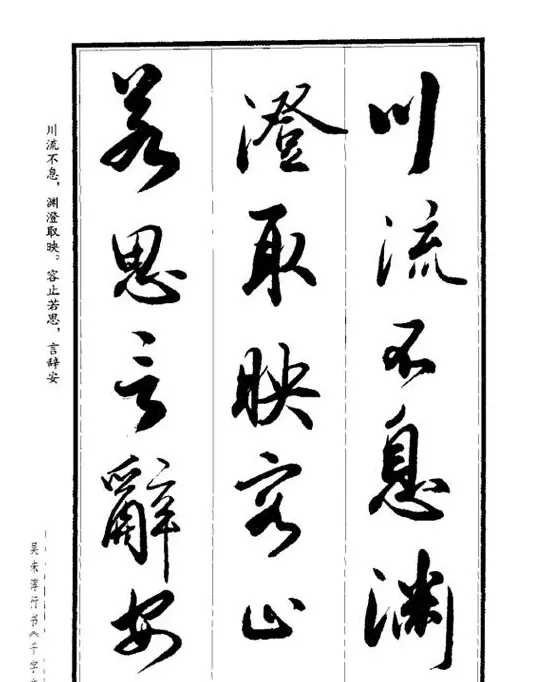 川流不息渊
澄取映容止
若思言辭安
川流不息，渊澄取映。容止若思，言辞安
吴未淳行书《千字文